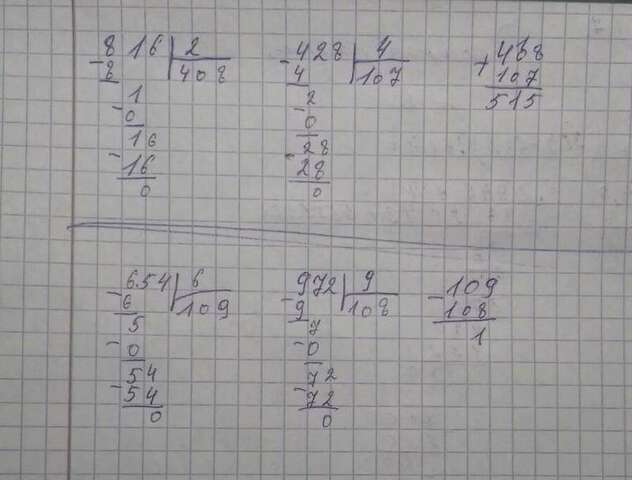 816 | 2
- 8 408
1
- 0
16
- 16
0
- 428 | 4
4 107
2
- 0
28
- 28
0
+ 468
107
515
- 654 | 6
6 109
5
- 0
54
- 54
0
972 | 9
- 9 108
7
- 0
72
- 72
0
- 109
108
1